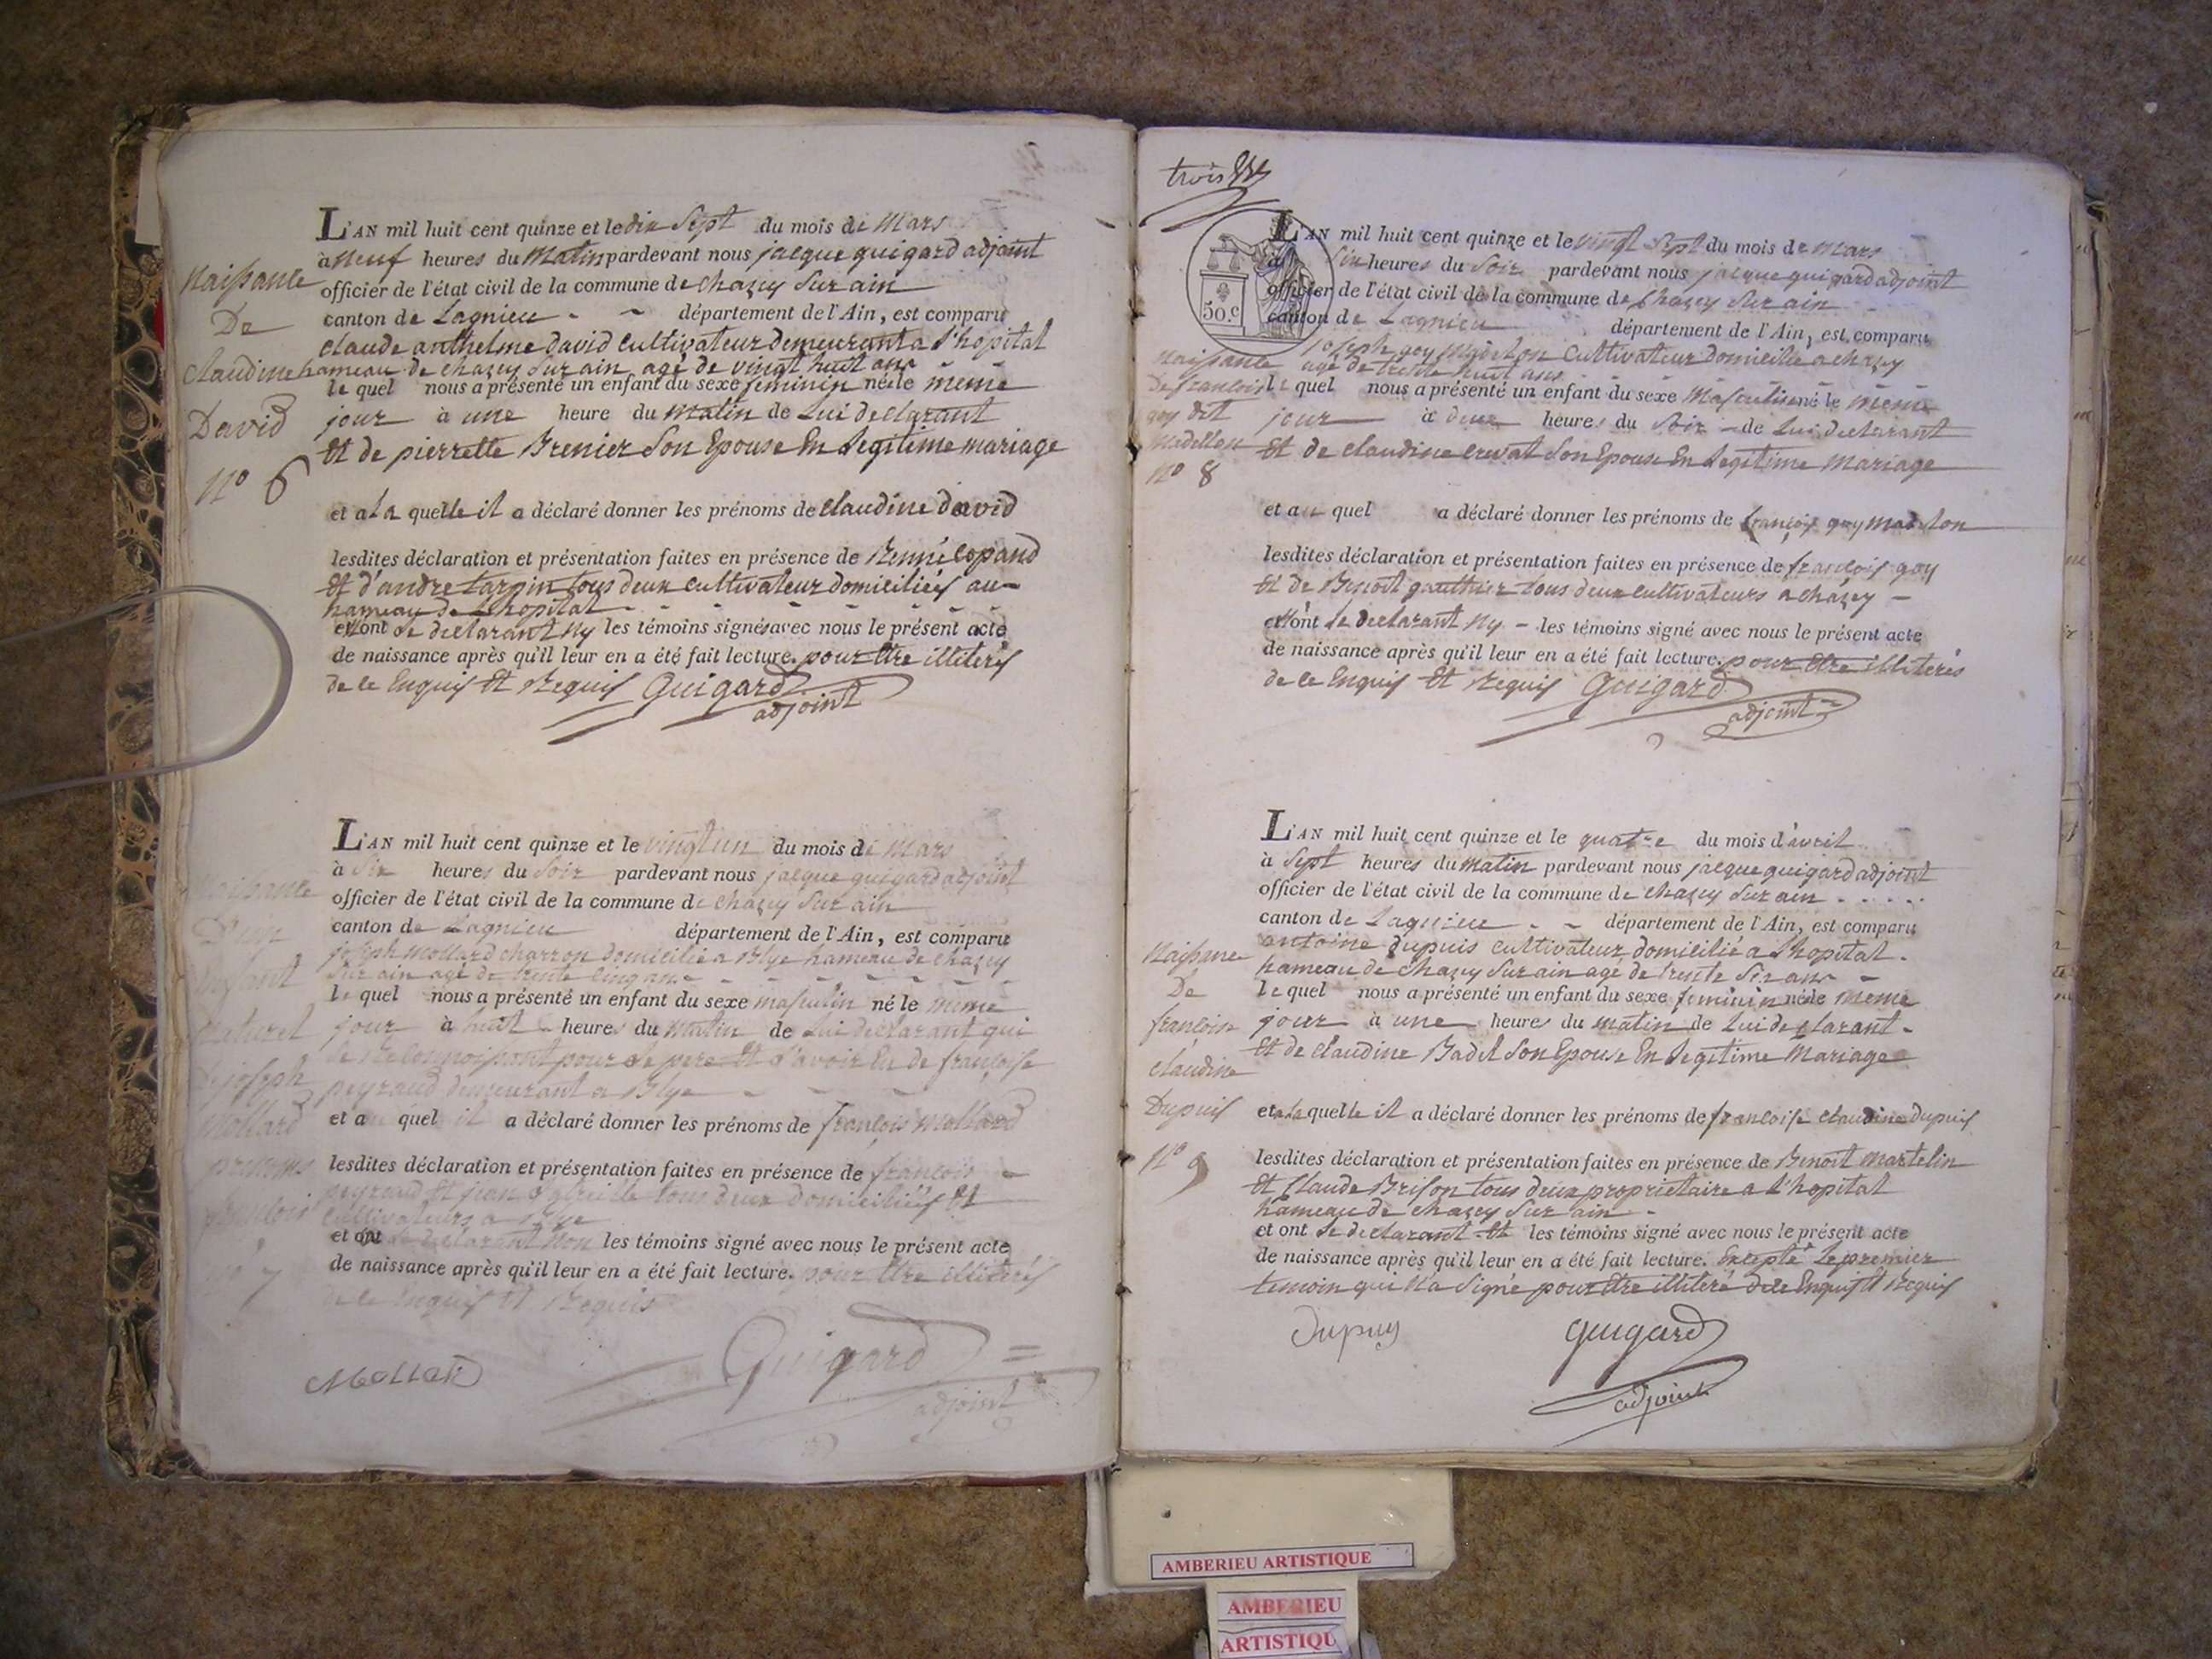 L'AN mil huit cent quinze et le dix Sept du mois de Mars
à Neuf heures du Matin pardevant nous jacque guigard adjoint
officier de l'état civil de la commune de Chazey Sur ain
canton de Lagnieu département de l'Ain, est comparu
Claude anthelme David Cultivateur demeurant a l'hopital
hameau de chazey Sur ain agé de vingt huit ans
le quel nous a présenté un enfant du sexe feminin née le meme
jour à une heure du matin de Lui declarant
Et de pierrette Brenier Son Epouse En Legitime mariage
et a La quelle il a déclaré donner les prénoms de Claudine David
lesdites déclaration et présentation faites en présence de
Et d'andre tous deux cultivateur domiciliés au
hameau de Lhopital
et n'ont Le declarant Ny les témoins signés avec nous le présent acte
de naissance après qu'il leur en a été fait lecture. pour Etre illiterés
de ce Enquis Et Requis Guigard
adjoint
Naissance
De
Claudine
David
N° 6
L'AN mil huit cent quinze et le vingt un du mois de Mars
à Six heures du Soir pardevant nous jacque guigard adjoint
officier de l'état civil de la commune de Chazey Sur ain
canton de Lagnieu département de l'Ain, est comparu
joseph Mollard charron domicilié a Blye hameau de Chazey
Sur ain agé de trente cinq ans
le quel nous a présenté un enfant du sexe masculin né le meme
jour à huit heures du matin de Lui declarant qui
Le Reconnoissant pour Le pere Et L'avoir Eu de françoise
peyraud demeurant a Blye
et au quel il a déclaré donner les prénoms de françois Mollard
lesdites déclaration et présentation faites en présence de francois
peyraud Et jean tous deux domiciliés Et
Cultivateurs a Blye
et ont Le declarant Non les témoins signé avec nous le présent acte
de naissance après qu'il leur en a été fait lecture. pour Etre illiterés
de ce Enquis Et Requis
Naissance
D'un
Enfant
naturel
De joseph
Mollard
prenoms
francois
N° 7
Mollard
Guigard
adjoint
trois
50.c
L'AN mil huit cent quinze et le vingt Sept du mois de Mars
à Six heures du Soir pardevant nous jacque guigard adjoint
officier de l'état civil de la commune de Chazey Sur ain
canton de Lagnieu département de l'Ain, est comparu
joseph goy Cultivateur domicilié a chazey
agé de trente huit ans
le quel nous a présenté un enfant du sexe Masculin né le meme
jour à deux heures du Soir de Lui declarant
Et de claudine Son Epouse En Legitime Mariage
et au quel a déclaré donner les prénoms de françois goy
lesdites déclaration et présentation faites en présence de francois goy
Et de Benoit gauthier tous deux cultivateurs a chazey
et n'ont Le declarant Ny les témoins signé avec nous le présent acte
de naissance après qu'il leur en a été fait lecture. pour Etre illiterés
de ce Enquis Et Requis Guigard
adjoint
Naissance
De francois
goy dit
N° 8
L'AN mil huit cent quinze et le quatre du mois d'avril
à Sept heures du Matin pardevant nous jacque guigard adjoint
officier de l'état civil de la commune de Chazey Sur ain
canton de Lagnieu département de l'Ain, est comparu
antoine dupuis cultivateur domicilié a Lhopital
hameau de Chazey Sur ain agé de trente Six ans
le quel nous a présenté un enfant du sexe feminin née le meme
jour à une heures du matin de Lui declarant
Et de claudine Badel Son Epouse En Legitime Mariage
et a la quelle il a déclaré donner les prénoms de francoise claudine Dupuis
lesdites déclaration et présentation faites en présence de Benoit Martelin
Et Claude Brison tous deux proprietaire a L'hopital
hameau de Chazey Sur ain
et ont Le declarant Et les témoins signé avec nous le présent acte
de naissance après qu'il leur en a été fait lecture. Excepté Le premier
temoin qui Na Signé pour Etre illiteré de ce Enquis Et Requis
Naissance
De
françoise
claudine
Dupuis
N° 9
Dupuy
guigard
adjoint
AMBERIEU ARTISTIQUE
AMBERIEU
ARTISTIQU